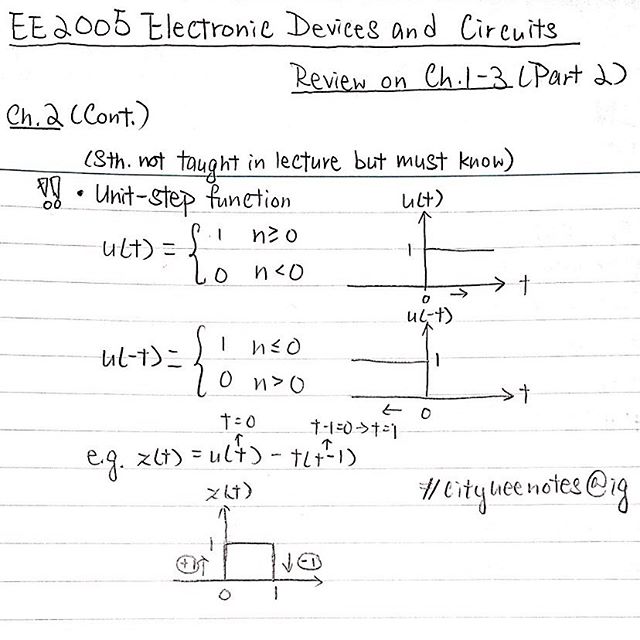 EE2005 Electronic Devices and Circuits
Review on Ch.1-3 (Part 2)
Ch.2 (Cont.)
(Sth. not taught in lecture but must know)
!! • Unit-step function
u(t) = { 1 n≥0
0 n<0
u(t)
1
0 → t
u(-t) = { 1 n≤0
0 n>0
u(-t)
1
← 0 t
t=0 t-1=0→t=1
↑ ↑
e.g. z(t) = u(t) - t(t-1)
#cityueenotes@ig
z(t)
1
+1 ↑ ↓ -1
0 1